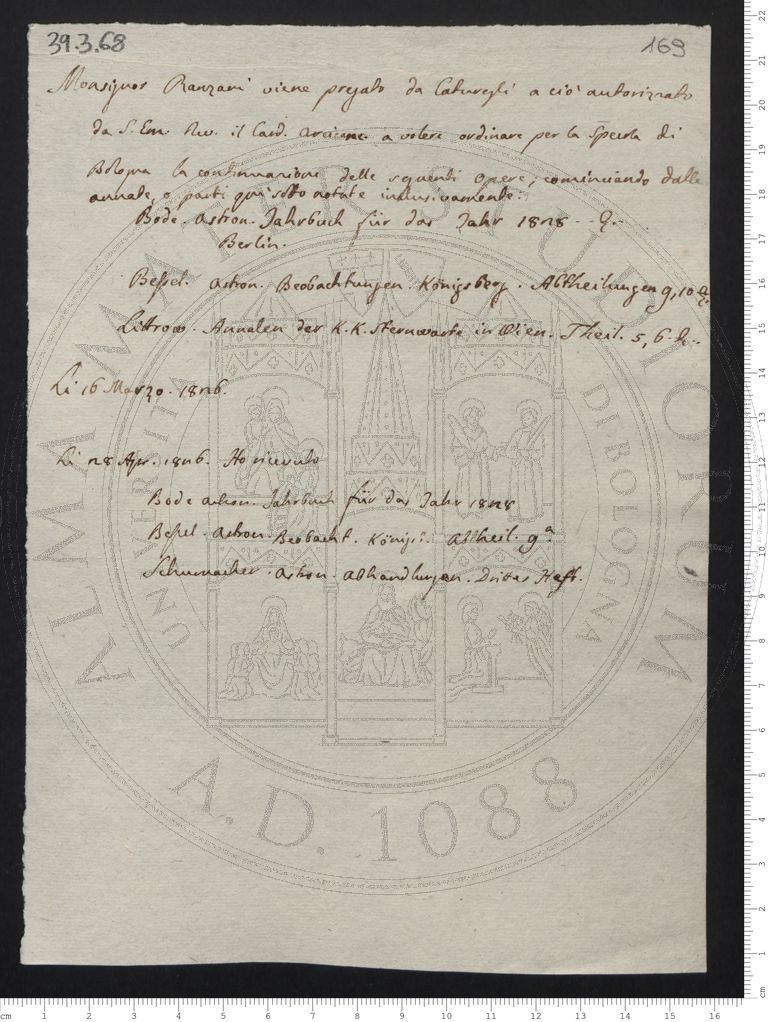 39.3.68
169
Monsignor Ranzani viene pregato da Caturegli a ciò autorizzato
da S. Em. Rev. il Card. Arcivesc. a volere ordinare per la Specola di
Bologna la continuazione delle seguenti opere; cominciando dalle
annate, o parti qui sotto notate inclusivamente:
Bode. astron. Jahrbuch für das Jahr 1828 - &. -
Berlin.
Bessel. astron. Beobachtungen. Königsberg. Abtheilungen 9, 10 &.
Littrow. Annalen der K. K. Sternwarte in Wien. Theil. 5, 6. &..
Li 16 Marzo. 1826.
Li 28 Apr. 1826. Ho ricevuto
Bode astron. Jahrbuch für das Jahr 1828
Bessel. astron. Beobacht. Königs. Abtheil. 9.a
Schumacher. astron. abhandlungen. Drittes Heft.
ALMA MATER STUDIORUM
UNIVERSITÀ DI BOLOGNA
A.D. 1088